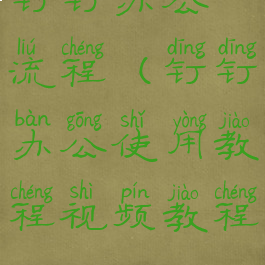 钉钉办公
liú chéng dīng dīng
流程(钉钉
bàn gōng shǐ yòng jiào
办公使用教
chéng shì pín jiào chéng
程视频教程